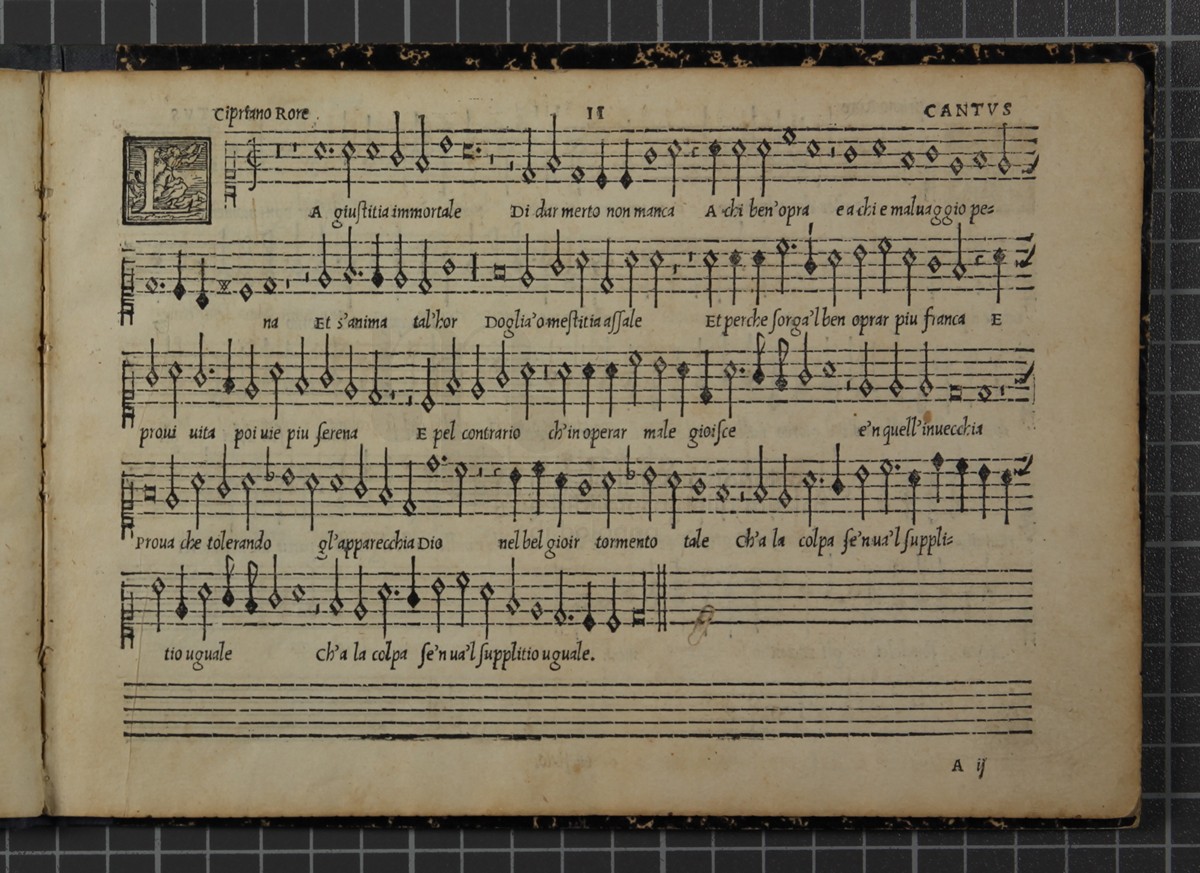 Cipriano Rore II CANTVS
L A giuſtitia immortale Di dar merto non manca A chi ben'opra e a chi e maluaggio pe=
na Et s'anima tal'hor Doglia'o meſtitia aſſale Et perche ſorga'l ben oprar piu franca E
proui uita poi uie piu ſerena E pel contrario ch'in operar male gioiſce e'n quell'inuecchia
Proua che tolerando gl'apparecchia Dio nel bel gioir tormento tale Ch'a la colpa ſe'n ua'l ſuppli=
tio uguale Ch'a la colpa ſe'n ua'l ſupplitio uguale.
A ij